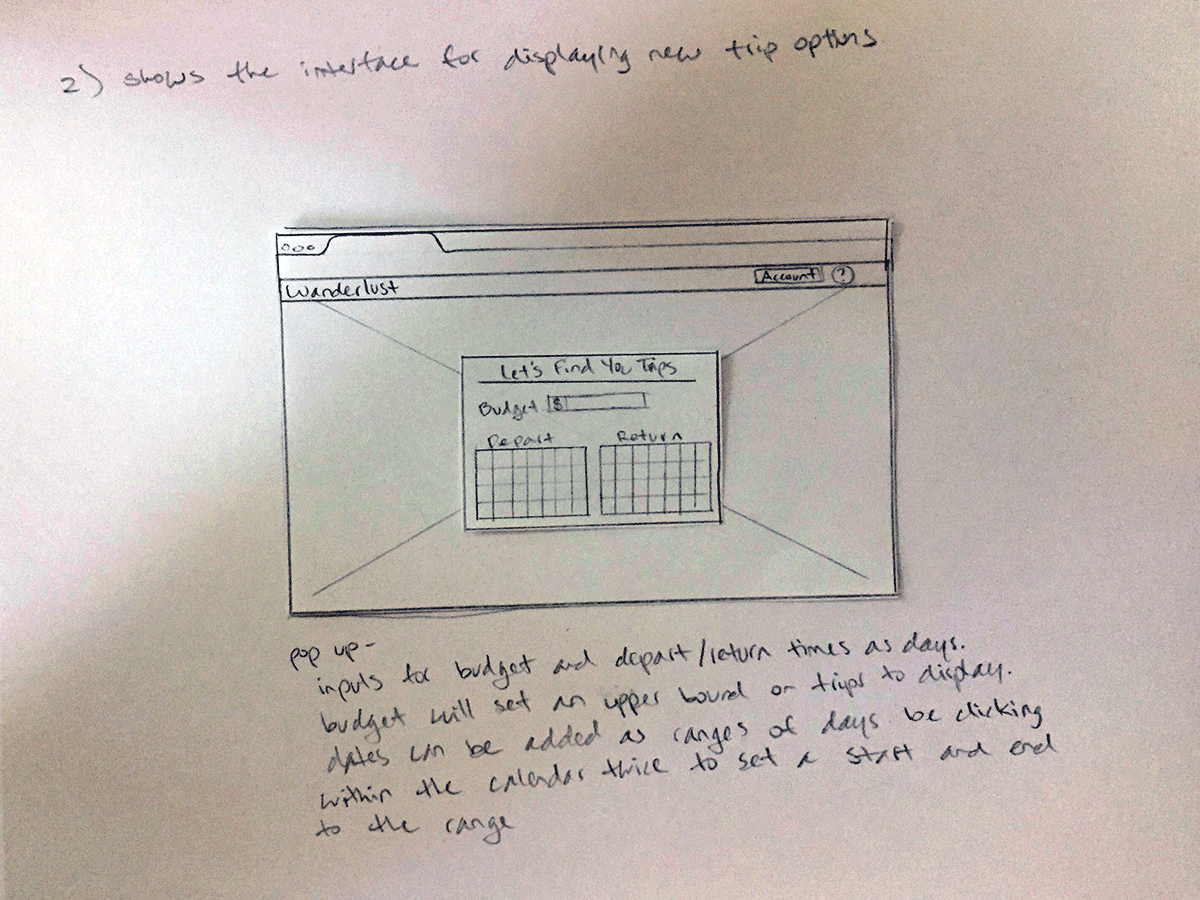 2) shows the interface for displaying new trip options
Wanderlust
Account ?
Let's Find You Trips
Budget $
Depart Return
pop up-
inputs for budget and depart/return times as days.
budget will set an upper bound on trips to display.
dates can be added as ranges of days be clicking
within the calendar twice to set a start and end
to the range